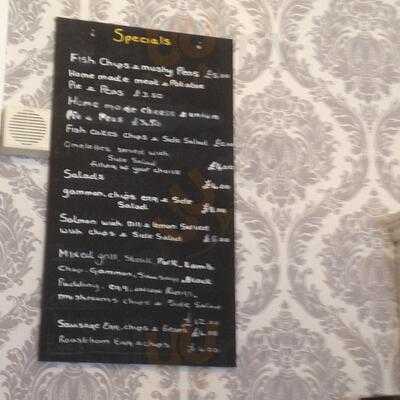 Specials
Fish Chips & mushy Peas £5.00
Home made meat & Potatoe
Pie & Peas £3.50
Home made cheese & onion
Pie & Peas £3.50
Fish cakes chips & Side Salad
Omelettes served with
Side Salad
filling of your choice £4.00
Salads £4.00
gammon, chips egg & Side
Salad
Salmon with Dill & lemon Served
with chips & Side Salad £5.00
Mixed grill, Steak Pork, Lamb
Chop, Gammon, Sausage, Black
Pudding, egg, onion Rings,
mushrooms chips & Side Salad
£12.00
Sausage Egg, chips & Beans £4.00
Roast ham Egg & chips £4.00